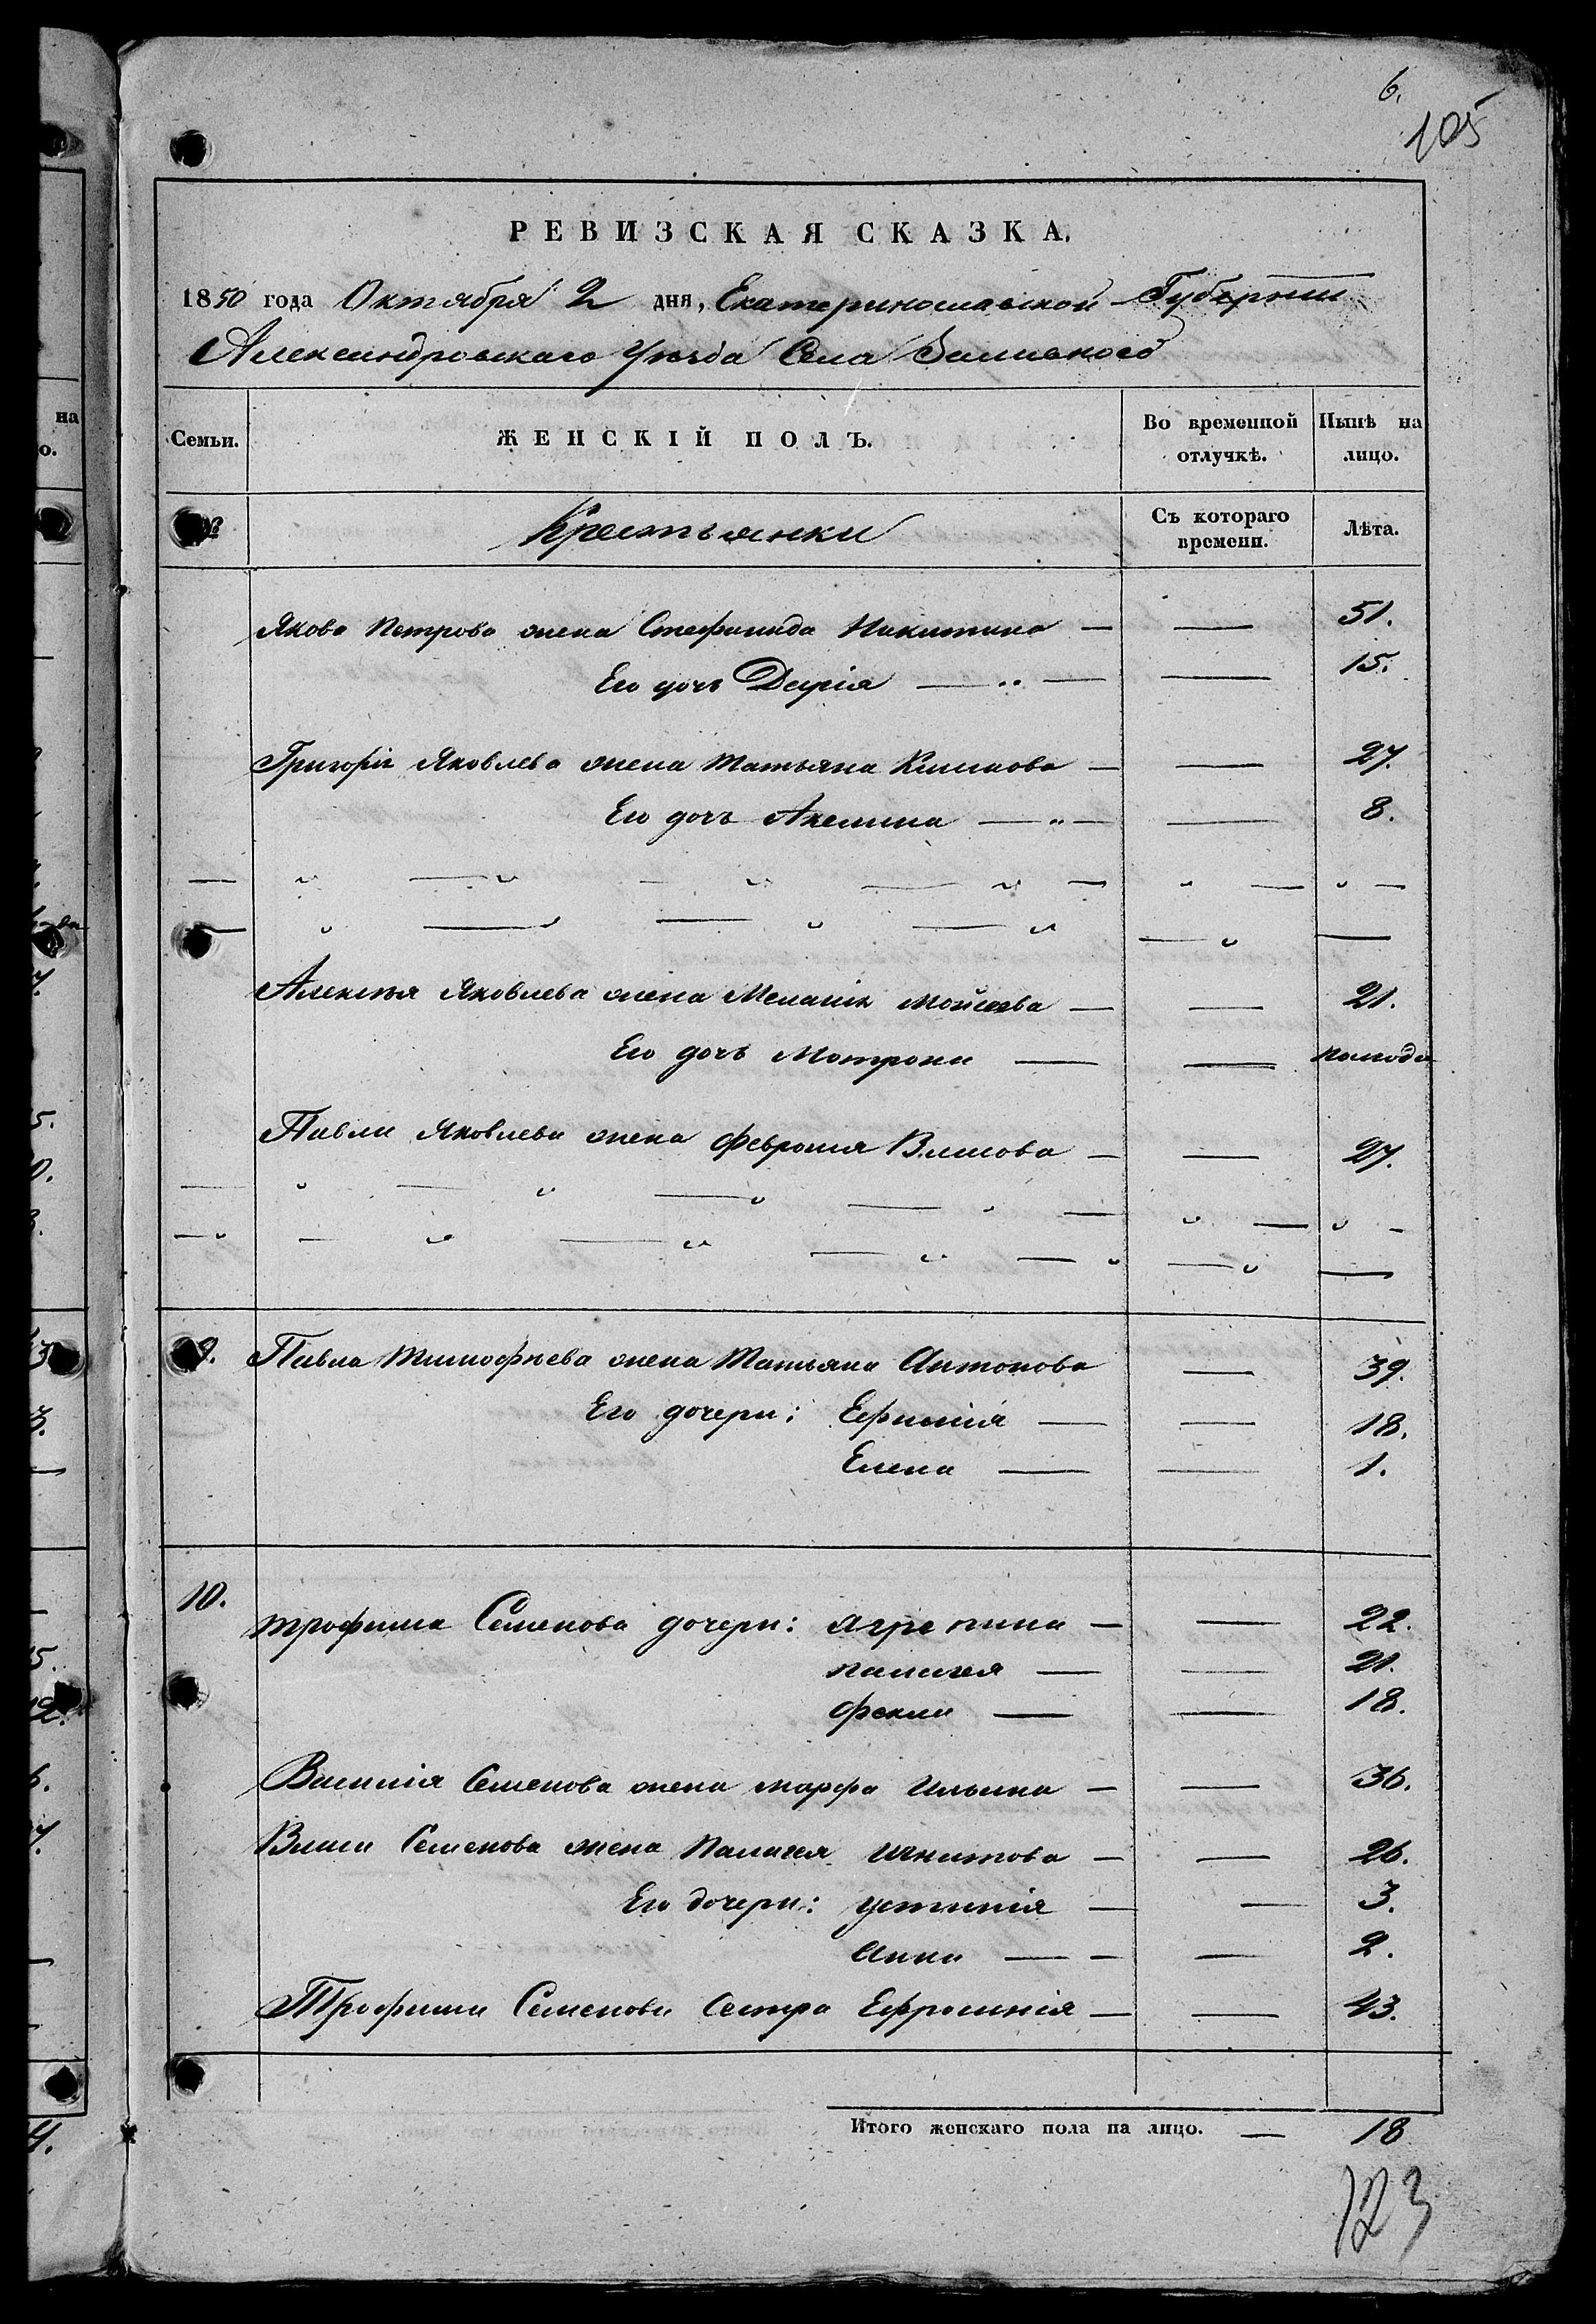 6.
105
РЕВИЗСКАЯ СКАЗКА.
1850 года Октября 2 дня, Екатеринославской Губернии
Александровскаго Уѣзда Села
Семьи. ЖЕНСКІЙ ПОЛЪ. Во временной отлучкѣ. Нынѣ на лицо.
№ Крестьянки Съ котораго времени. Лѣта.
Якова Петрова жена Стефанида Никитина — — 51.
Его дочь Дарія — „ — — 15.
Григорія Яковлева жена Татьяна Климова — — 27.
Его дочь Акелина — „ — — 8.
Алексѣя Яковлева жена Меланія Мойсеева — — 21.
Его дочь Мотрона — — полгода
Павла Яковлева жена Феврония Власова — — 27.
9. Павла Тимофѣева жена Татьяна Антонова — 39.
Его дочери: Ефимія — — 18.
Елена — — 1.
10.
Трофима Семенова дочери: Агрепина — — 22.
Палагея — — 21.
Фекла — — 18.
Василія Семенова жена Марфа Ильина — — 36.
Власа Семенова жена Палагея Игнатова — — 26.
Его дочери: Устинія — — 3.
Анна — — — 2.
Трофима Семенова Сестра Ефросинія — — 43.
Итого женскаго пола на лицо. — 18
123